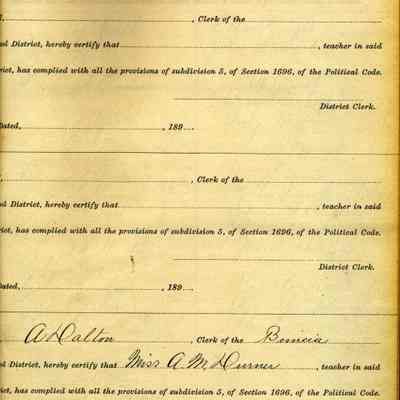 , Clerk of the
District, hereby certify that , teacher in said
rict, has complied with all the provisions of subdivision 5, of Section 1696, of the Political Code.
District Clerk.
Dated, , 189
, Clerk of the
District, hereby certify that , teacher in said
rict, has complied with all the provisions of subdivision 5, of Section 1696, of the Political Code.
District Clerk.
Dated, , 189
A Dalton , Clerk of the Benicia
District, hereby certify that Miss A. M. , teacher in said
rict, has complied with all the provisions of subdivision 5, of Section 1696, of the Political Code.